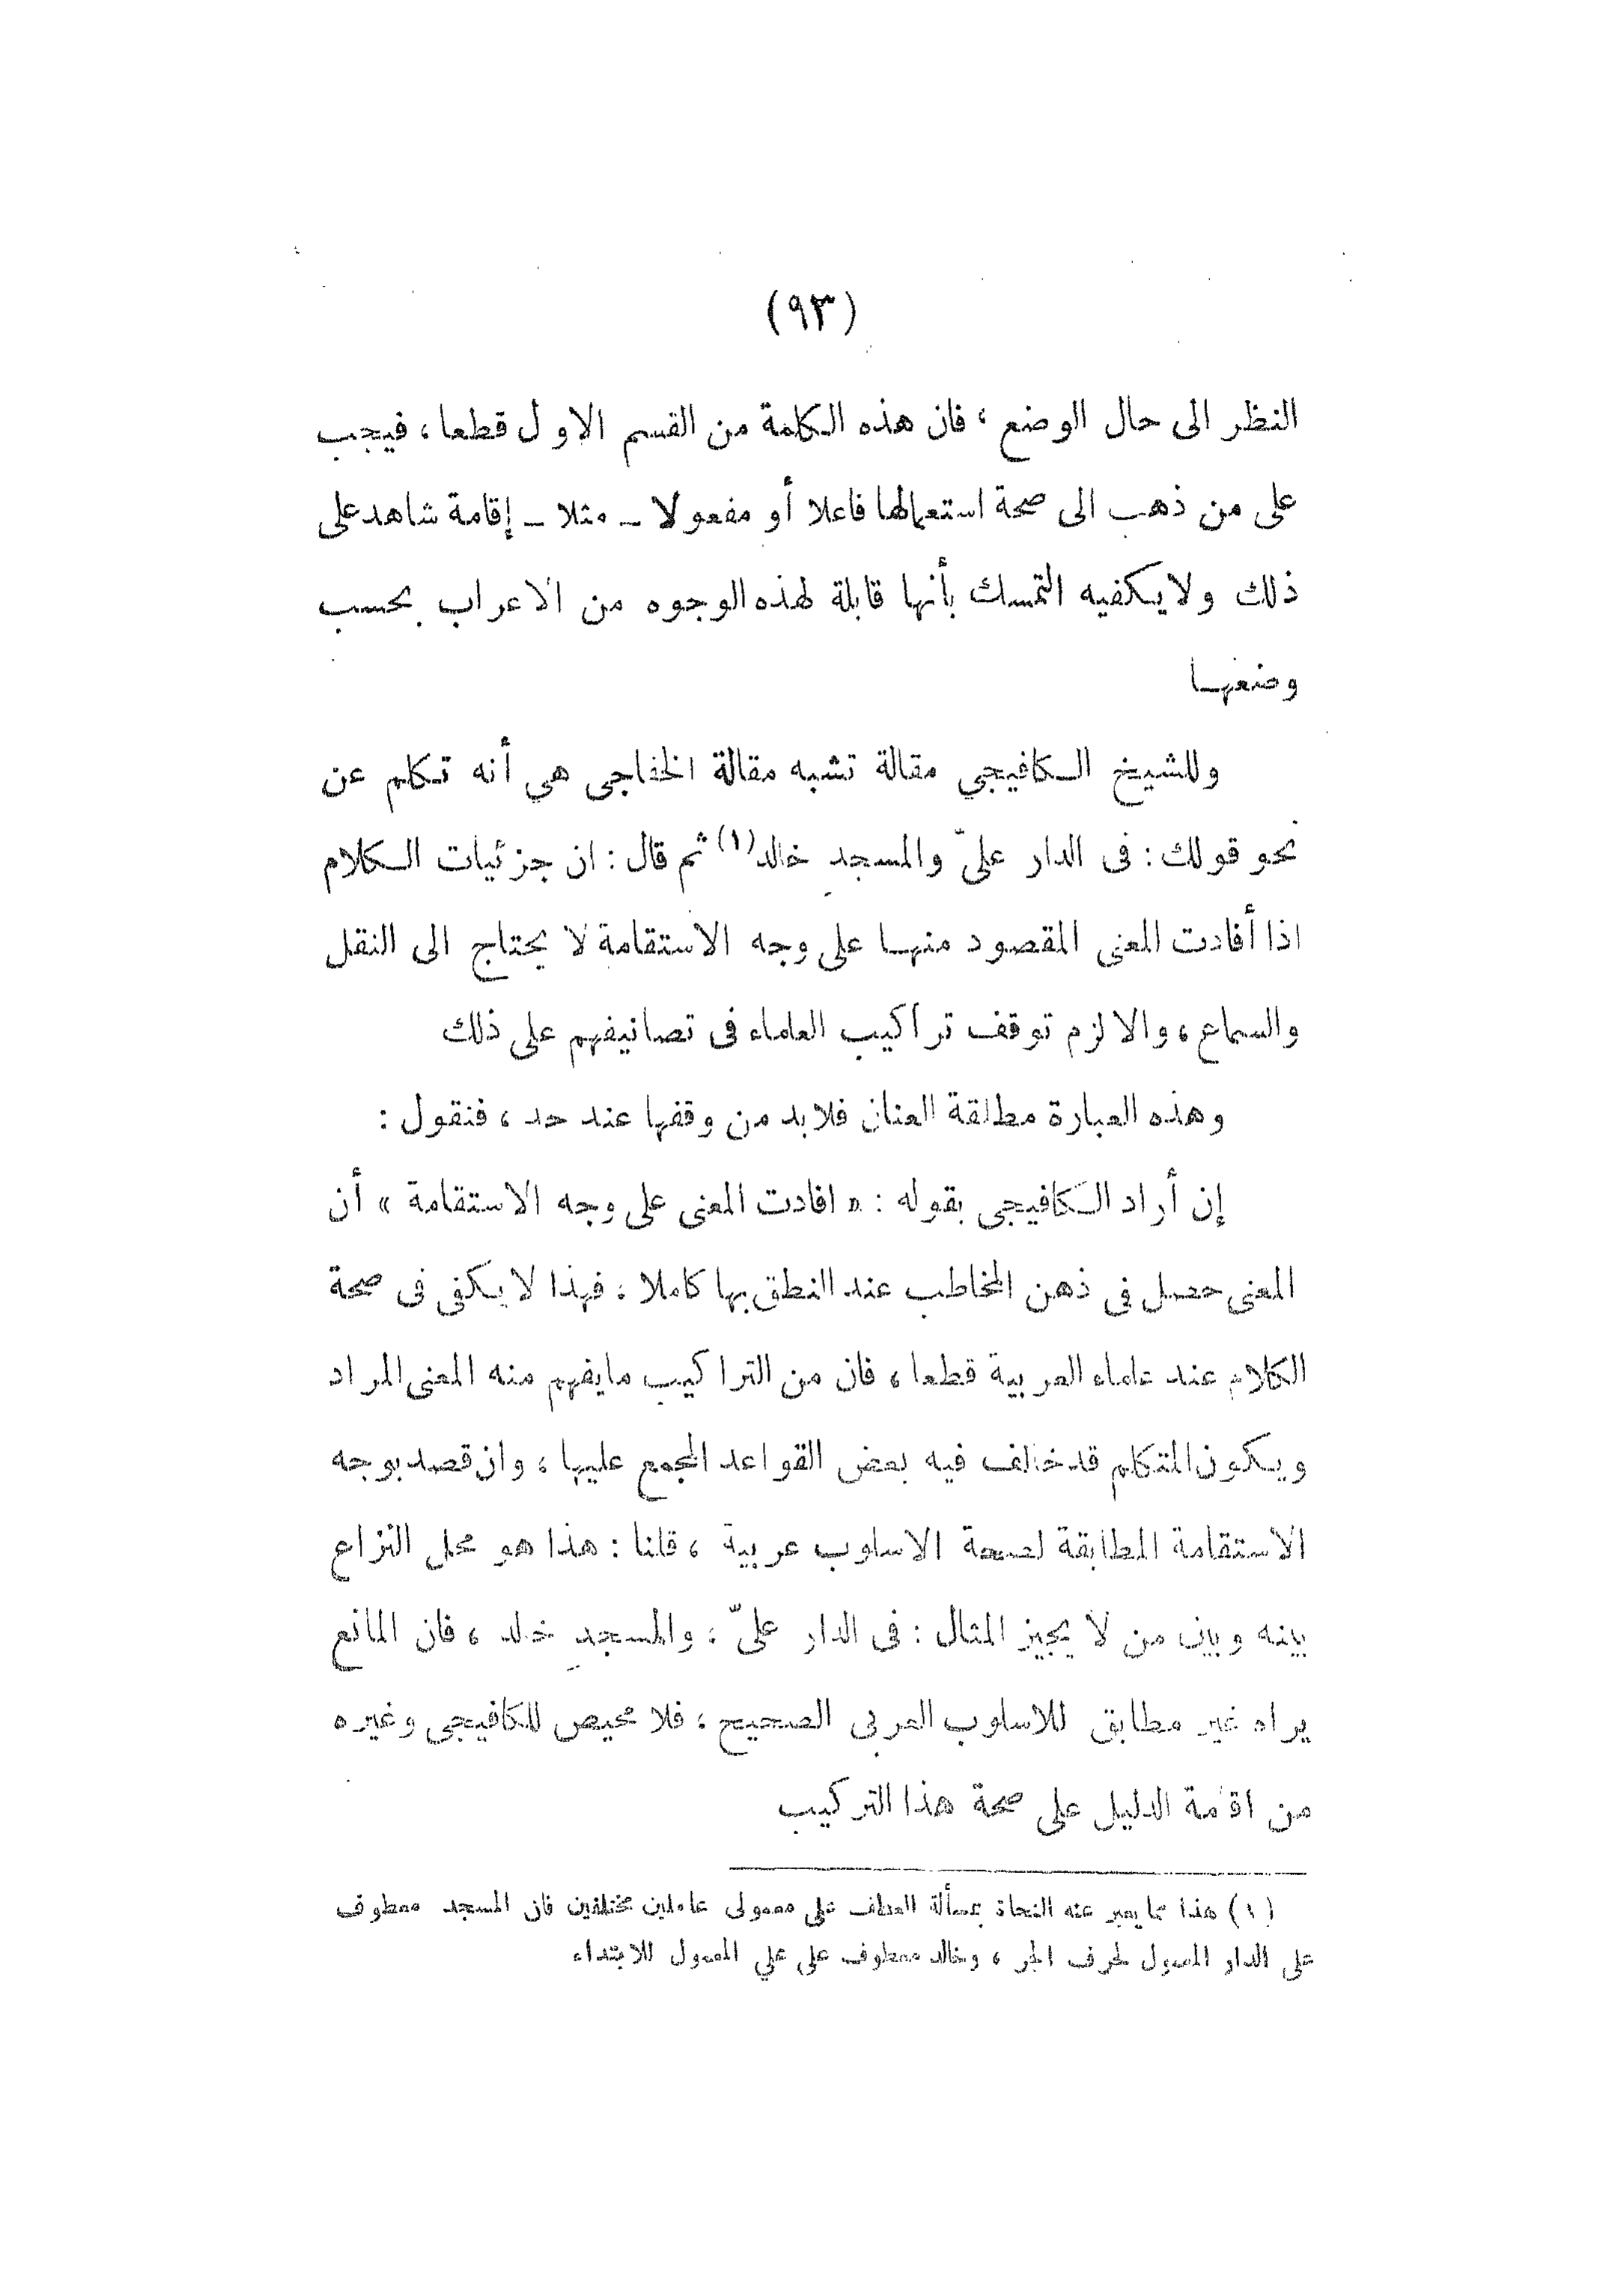 (٩٣)
النظر الى حال الوضع ، فان هذه الكلمة من القسم الاول قطعا ، فيجب
على من ذهب الى صحة استعمالها فاعلا أو مفعولا ــ مثلا ــ إقامة شاهد على
ذلك ولا يكفيه التمسك بأنها قابلة لهذه الوجوه من الاعراب بحسب
وضعها
وللشيخ الكافيجي مقالة تشبه مقالة الخفاجى هي أنه تكلم عن
نحو قولك : فى الدار علىّ والمسجدِ خالد(١) ثم قال : ان جزئيات الكلام
اذا أفادت المعنى المقصود منها على وجه الاستقامة لا يحتاج الى النقل
والسماع ، والا لزم توقف تراكيب العلماء فى تصانيفهم على ذلك
وهذه العبارة مطلقة العنان فلا بد من وقفها عند حد ، فنقول :
إن أراد الكافيجى بقوله : « افادت المعنى على وجه الاستقامة » أن
المعنى حصل فى ذهن المخاطب عند النطق بها كاملا ، فهذا لا يكفى فى صحة
الكلام عند علماء العربية قطعا ، فان من التراكيب ما يفهم منه المعنى المراد
ويكون المتكلم قد خالف فيه بعض القواعد المجمع عليها ، وان قصد بوجه
الاستقامة المطابقة لصحة الاسلوب عربية ، قلنا : هذا هو محل النزاع
بينه وبين من لا يجيز المثال : فى الدار علىّ ، والمسجدِ خالد ، فان المانع
يراه غير مطابق للاسلوب العربى الصحيح ، فلا محيص للكافيجى وغيره
من اقامة الدليل على صحة هذا التركيب
(١) هذا مما يعبر عنه النحاة بمسألة العطف على معمولى عاملين مختلفين فان المسجد معطوف
على الدار المعمول لحرف الجر ، وخالد معطوف على علي المعمول للابتداء